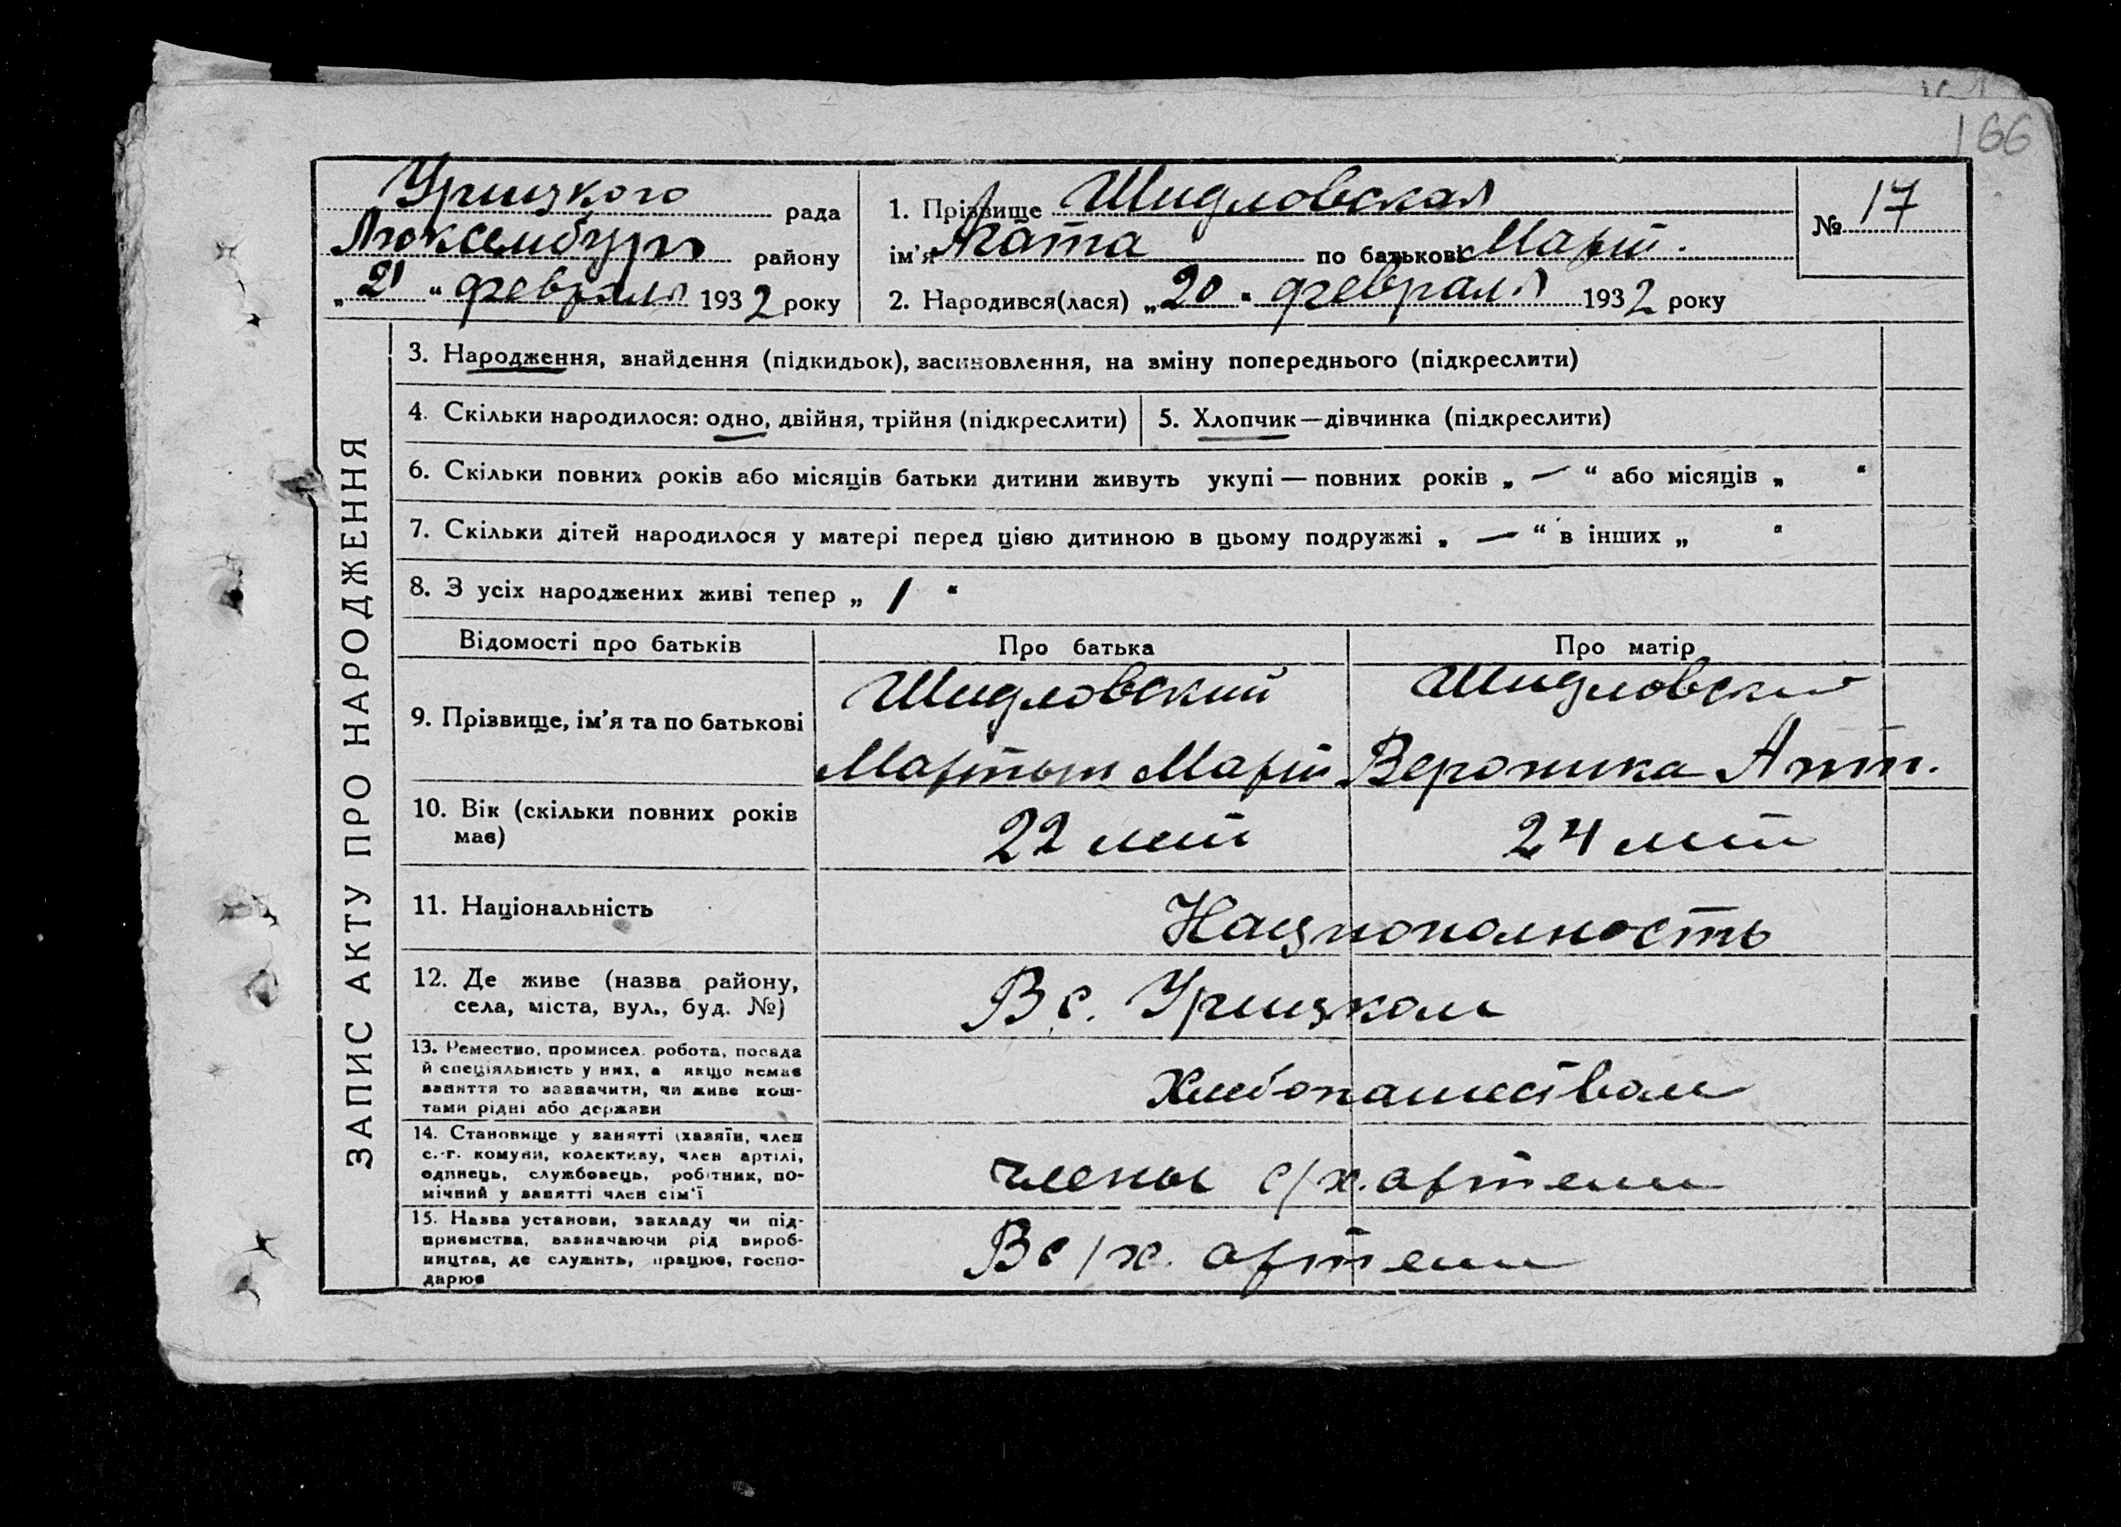 166
Урицкого рада
Люксембург району
„21“ февраля 1932 року
1. Прізвище Шидловская
ім'я Агата по батькові Март.
2. Народився(лася) „20“ февраля 1932 року
№ 17
ЗАПИС АКТУ ПРО НАРОДЖЕННЯ
3. Народження, знайдення (підкидьок), засиновлення, на зміну попереднього (підкреслити)
4. Скільки народилося: одно, двійня, трійня (підкреслити) 5. Хлопчик—дівчинка (підкреслити)
6. Скільки повних років або місяців батьки дитини живуть укупі — повних років „ — “ або місяців „ “
7. Скільки дітей народилося у матері перед цією дитиною в цьому подружжі „ — “ в інших „ “
8. З усіх народжених живі тепер „ 1 “
Відомості про батьків Про батька Про матір
9. Прізвище, ім'я та по батькові
Шидловский
Мартын Март
Шидловская
Вероника Антп.
10. Вік (скільки повних років
має)
22 лет
24 лет
11. Національність
Нацпополность
12. Де живе (назва району,
села, міста, вул., буд. №)
В с. Урицком
13. Ремество, промисел. робота, посада
й спеціяльність у них, а якщо немає
заняття то зазначити, чи живе кош-
тами рідні або держави
Хлебопашеством
14. Становище у занятті (хазяїн, член
с.-г. комуни, колективу, член артілі,
одинець, службовець, робітник, по-
мічний у занятті член сім'ї
члены с/х. артели
15. Назва установи, закладу чи під-
приємства, зазначаючи рід вироб-
ництва, де служить, працює, госпо-
дарює
В с/х. артели